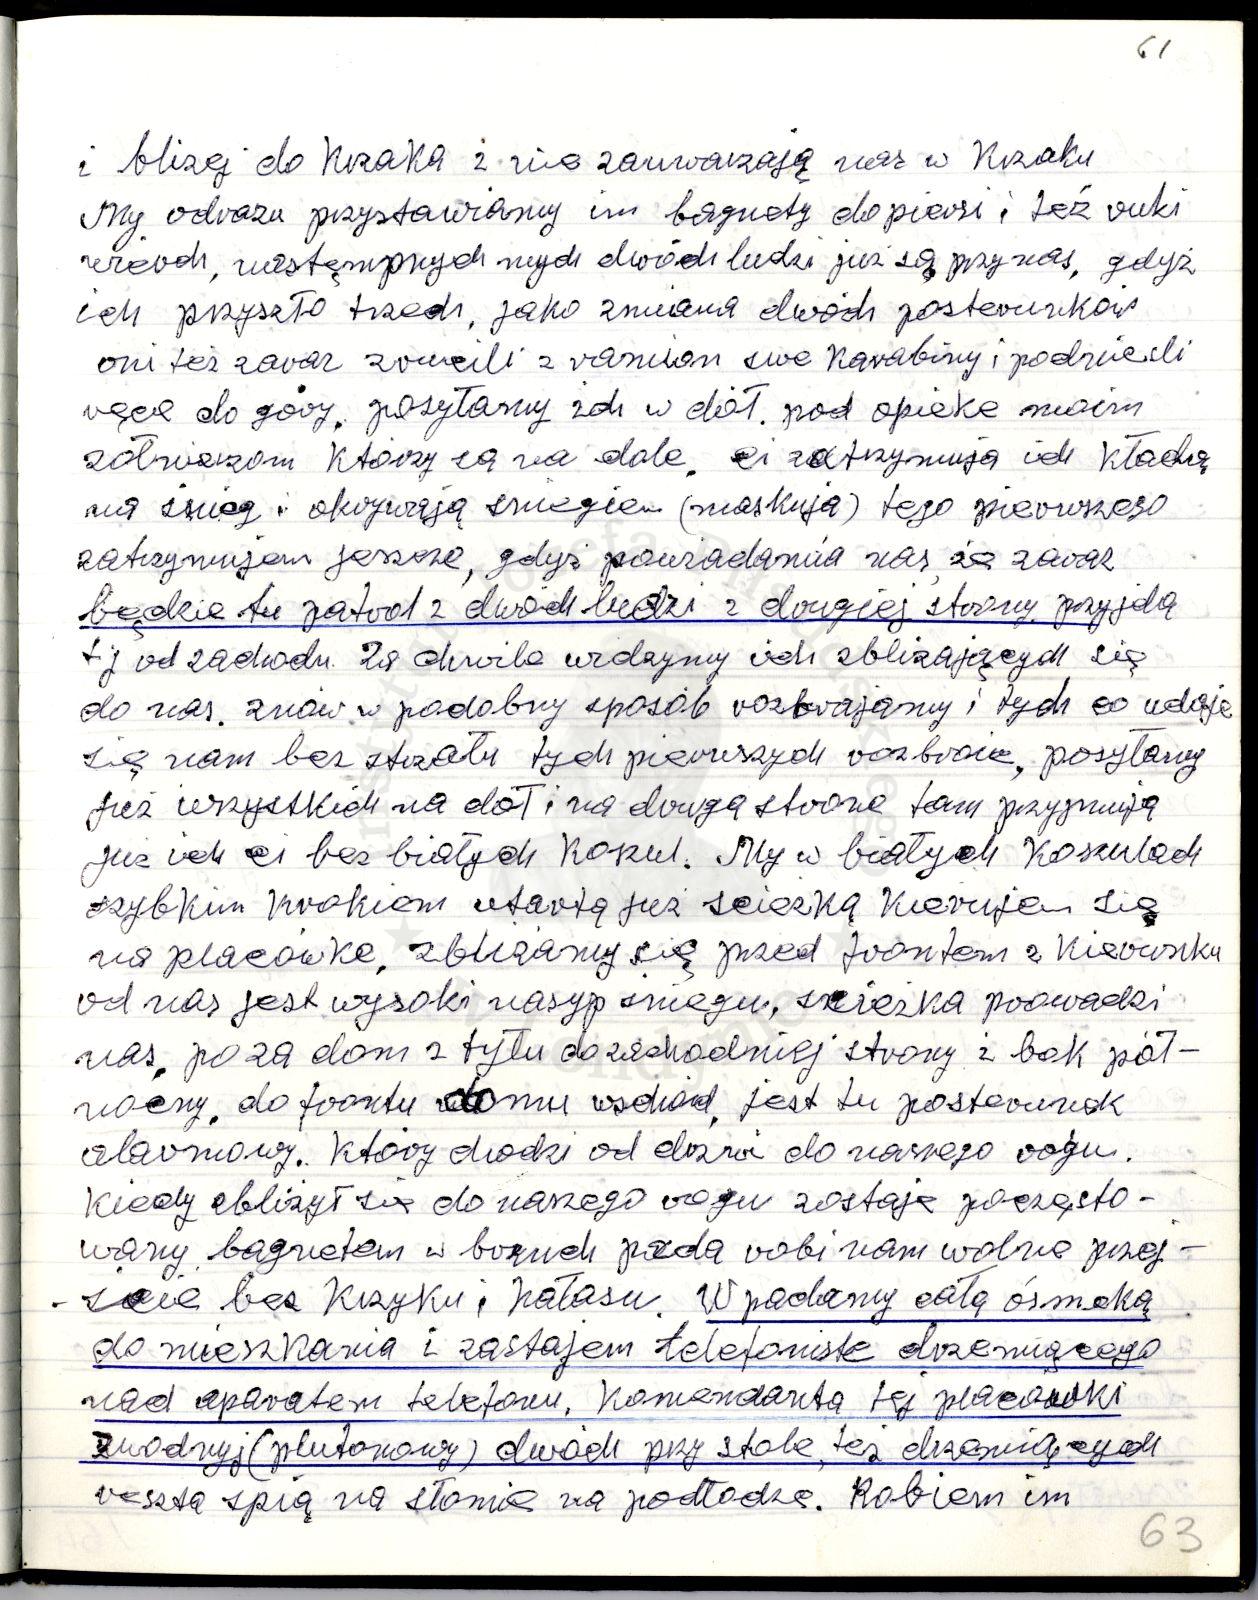 61
i bliżej do krzaka i nie zauwarzają nas w krzaku
My odrazu przystawiamy im bagnety do piersi i też ruki
wierch, następnych mych dwóch ludzi już są przy nas, gdyż
ich przyszło trzech, jako zmiana dwóch posterunków
oni też zaraz zrucili z ramion swe karabiny i podnieśli
ręce do góry. posyłamy ich w dół. pod opieke moim
żołnierzom którzy są na dole, ci zatrzymują ich kładną
na śnieg i okrywają śniegiem (maskują) tego pierwszego
zatrzymujem jeszcze, gdyż powiadamia nas, że zaraz
będzie tu patrol z dwóch ludzi z drugiej strony przyjdą
tj od zachodu. Za chwile widzymy ich zbliżających się
do nas. znów w podobny sposób rozbrajamy i tych co udaje
się nam bez strzału tych pierwszych rozbroic, posyłamy
już wszystkich na dół i na drugą strone tam przyjmują
już ich ci bez białych koszul. My w białych koszulach
szybkim krokiem utartą już scieżką kierujem się
na placówke, zbliżamy się przed frontem z kierunku
od nas jest wysoki nasyp śniegu, scieżka prowadzi
nas, poza dom z tyłu do zachodniej strony i bok pół-
nocny, do frontu domu wschód, jest tu posterunek
alarmowy. który chodzi od drzwi do naszego rogu.
Kiedy zbliżył się do naszego rogu zostaje poczęsto-
wany bagnetem w brzuch pada robi nam wolne przej-
- scie bez krzyku i hałasu. Wpadamy całą ósmeką
do mieszkania i zastajem telefoniste drzemiącego
nad aparatem telefonu, Komendanta tej placówki
zwodnyj (plutonowy) dwóch przy stole, też drzemiących
reszta spią na słomie na podłodze. Robiem im
63